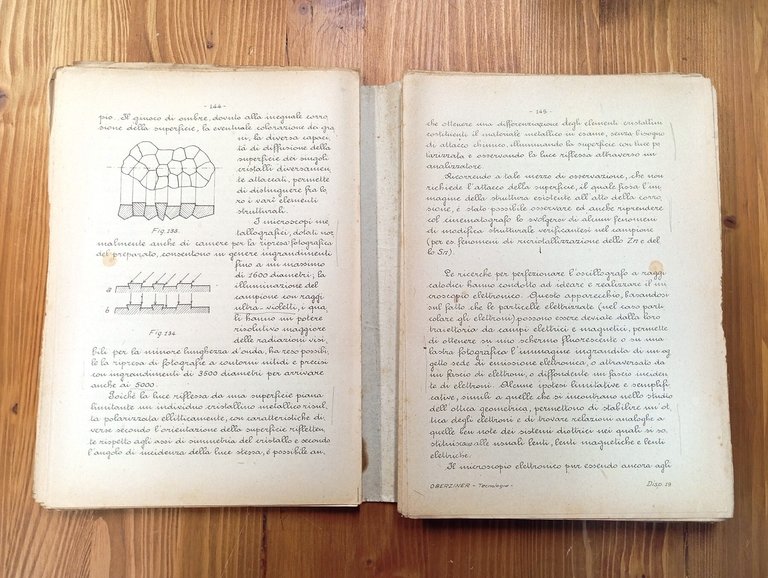 - 144 -
pio. Il giuoco di ombre, dovuto alla ineguale corro
sione della superficie, la eventuale colorazione dei gra
ni, la diversa capaci
tà di diffusione della
superficie dei singoli
cristalli diversamen
te attaccati, permette
di distinguere fra lo
ro i varî elementi
strutturali.
Fig. 133.
I microscopi me
tallografici, dotati nor
malmente anche di camere per la ripresa fotografica
del preparato, consentono in genere ingrandimenti
fino a un massimo
di 1600 diametri; la
illuminazione del
campione con raggi
ultra-violetti, i qua
li hanno un potere
risolutivo maggiore
delle radiazioni visi
a
b
Fig. 134
bili per la minore lunghezza d'onda, ha reso possibi
le la ripresa di fotografie a contorni nitidi e precisi
con ingrandimenti di 3500 diametri per arrivare
anche ai 5000.
Poichè la luce riflessa da una superficie piana
limitante un individuo cristallino metallico risul
ta polarizzata ellitticamente, con caratteristiche di
verse secondo l'orientazione della superficie rifletten
te rispetto agli assi di simmetria del cristallo e secondo
l'angolo di incidenza della luce stessa, è possibile an
- 145 -
che ottenere una differenziazione degli elementi cristallini
costituenti il materiale metallico in esame, senza bisogno
di attacco chimico, illuminando la superficie con luce po
larizzata e osservando la luce riflessa attraverso un
analizzatore.
Ricorrendo a tale mezzo di osservazione, che non
richiede l'attacco della superficie, il quale fissa l'im
magine della struttura esistente all'atto della corro
sione, è stato possibile osservare ed anche riprendere
col cinematografo lo svolgersi di alcuni fenomeni
di modifica strutturale verificantesi nel campione
(per es. fenomeni di ricristallizzazione dello Zn e del
lo Sn).
Le ricerche per perfezionare l'oscillografo a raggi
catodici hanno condotto ad ideare e realizzare il mi
croscopio elettronico. Questo apparecchio, basandosi
sul fatto che le particelle elettrizzate (nel caso parti
colare gli elettroni) possono essere deviate dalla loro
traiettoria da campi elettrici e magnetici, permette
di ottenere su uno schermo fluorescente o su una
lastra fotografica l'immagine ingrandita di un og
getto sede di emissione elettronica, o attraversato da
un fascio di elettroni, o diffondente un fascio inciden
te di elettroni. Alcune ipotesi limitative e semplifi
cative, simili a quelle che si incontrano nello studio
dell'ottica geometrica, permettono di stabilire un'ot
tica degli elettroni e di trovare relazioni analoghe a
quelle ben note dei sistemi diottrici nei quali si so
stituiscano alle usuali lenti, lenti magnetiche e lenti
elettriche.
Il microscopio elettronico pur essendo ancora agli
OBERZINER - Tecnologia - Disp. 19